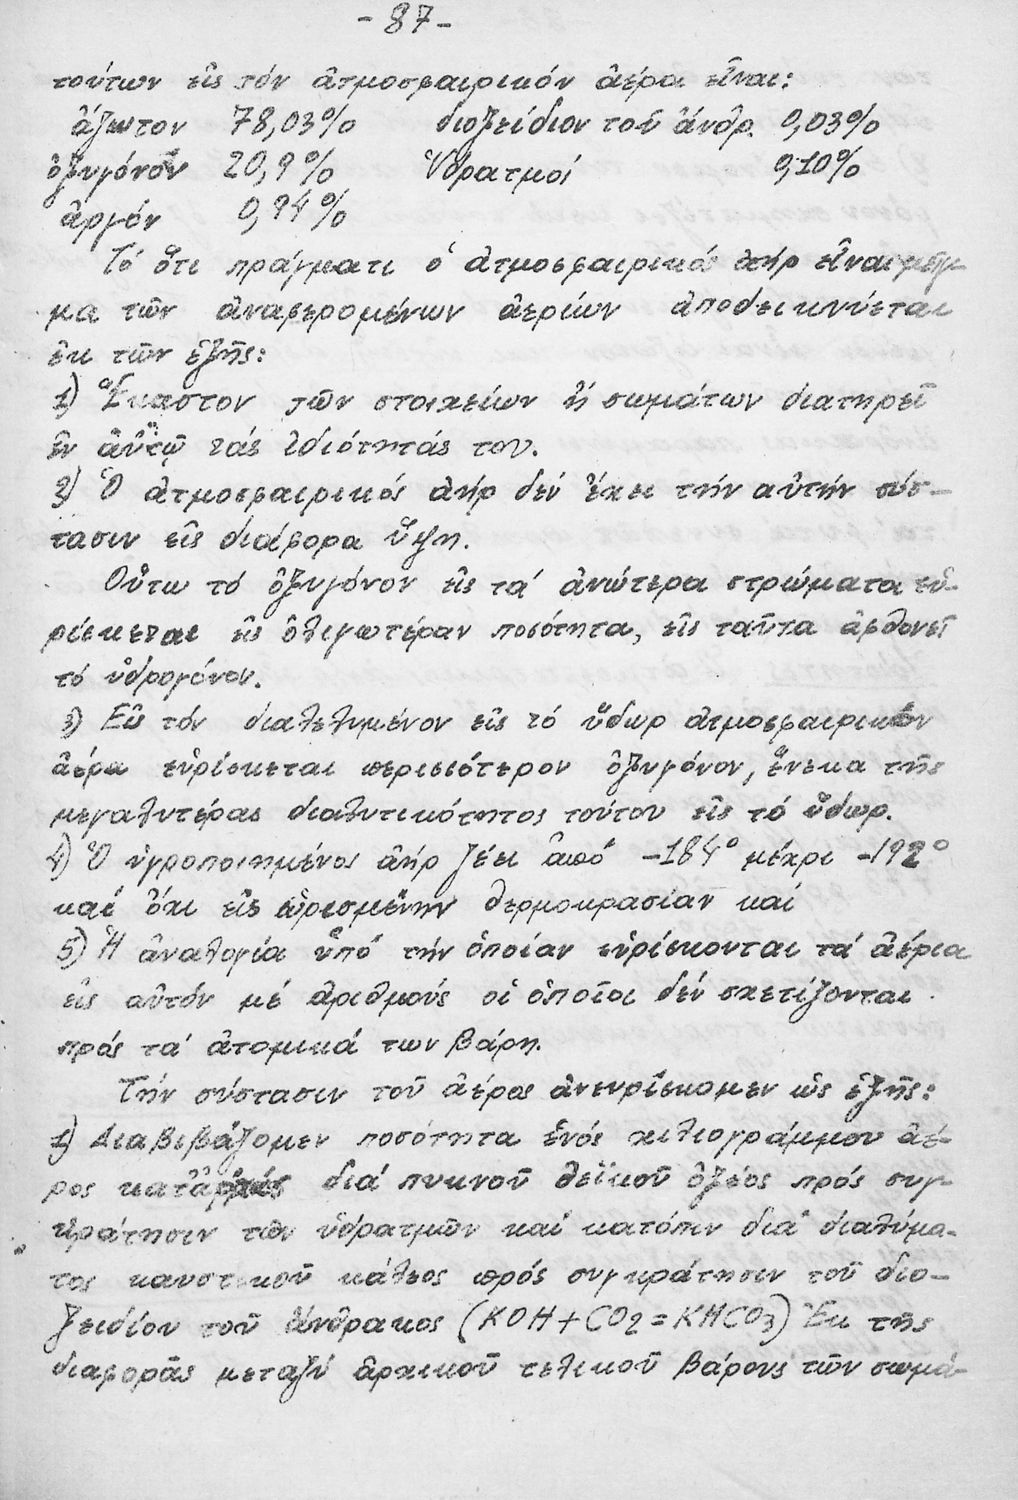 - 87 -
τούτων εἰς τόν ἀτμοσφαιρικόν ἀέρα εἶναι:
ἄζωτον 78,03% διοξείδιον τοῦ ἄνθρ. 0,03%
ὀξυγόνον 20,9% Ὑδρατμοί 0,10%
ἀργόν 0,94%
Τό ὅτι πράγματι ὁ ἀτμοσφαιρικός ἀήρ εἶναι μεῖγ-
μα τῶν ἀναφερομένων ἀερίων ἀποδεικνύεται
ἐκ τῶν ἑξῆς:
1) Ἕκαστον τῶν στοιχείων ἤ σωμάτων διατηρεῖ
ἐν αὐτῷ τάς ἰδιότητάς του.
2) Ὁ ἀτμοσφαιρικός ἀήρ δέν ἔχει τήν αὐτήν σύσ-
τασιν εἰς διάφορα ὕψη.
Οὕτω τό ὀξυγόνον εἰς τά ἀνώτερα στρώματα εὑ-
ρίσκεται εἰς ὀλιγωτέραν ποσότητα, εἰς ταῦτα ἀφθονεῖ
τό ὑδρογόνον.
3) Εἰς τόν διαλελυμένον εἰς τό ὕδωρ ἀτμοσφαιρικόν
ἀέρα εὑρίσκεται περισσότερον ὀξυγόνον, ἕνεκα τῆς
μεγαλυτέρας διαλυτικότητος τούτου εἰς τό ὕδωρ.
4) Ὁ ὑγροποιημένος ἀήρ ζέει ἀπό -184° μέχρι -192°
καί ὄχι εἰς ὡρισμένην θερμοκρασίαν καί
5) Ἡ ἀναλογία ὑπό τήν ὁποίαν εὑρίσκονται τά ἀέρια
εἰς αὐτόν μέ ἀριθμούς οἱ ὁποῖοι δέν σχετίζονται
πρός τά ἀτομικά των βάρη.
Τήν σύστασιν τοῦ ἀέρος ἀνευρίσκομεν ὡς ἑξῆς:
1) Διαβιβάζομεν ποσότητα ἑνός χιλιογράμμου ἀέ-
ρος κατ' ἀρχάς διά πυκνοῦ θεϊικοῦ ὀξέος πρός συγ-
κράτησιν τῶν ὑδρατμῶν καί κατόπιν διά διαλύμα-
τος καυστικοῦ κάλεος πρός συγκράτησιν τοῦ διο-
ξειδίου τοῦ ἄνθρακος (KOH+CO2=KHCO3) Ἐκ τῆς
διαφορᾶς μεταξύ ἀρχικοῦ τελικοῦ βάρους τῶν σωμά-